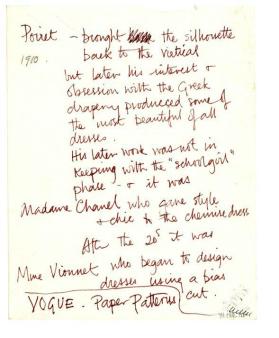 Poiret - brought the silhouette
1910. back to the vertical
but later his interest &
obsession with the Greek
drapery produced some of
the most beautiful of all
dresses.
His later work was not in
keeping with the "schoolgirl"
phase - & it was
Madame Chanel who gave style
& chic to the chemise dress
After the 20s it was
Mme Vionnet who began to design
dresses using a bias
VOGUE - Paper Patterns cut.